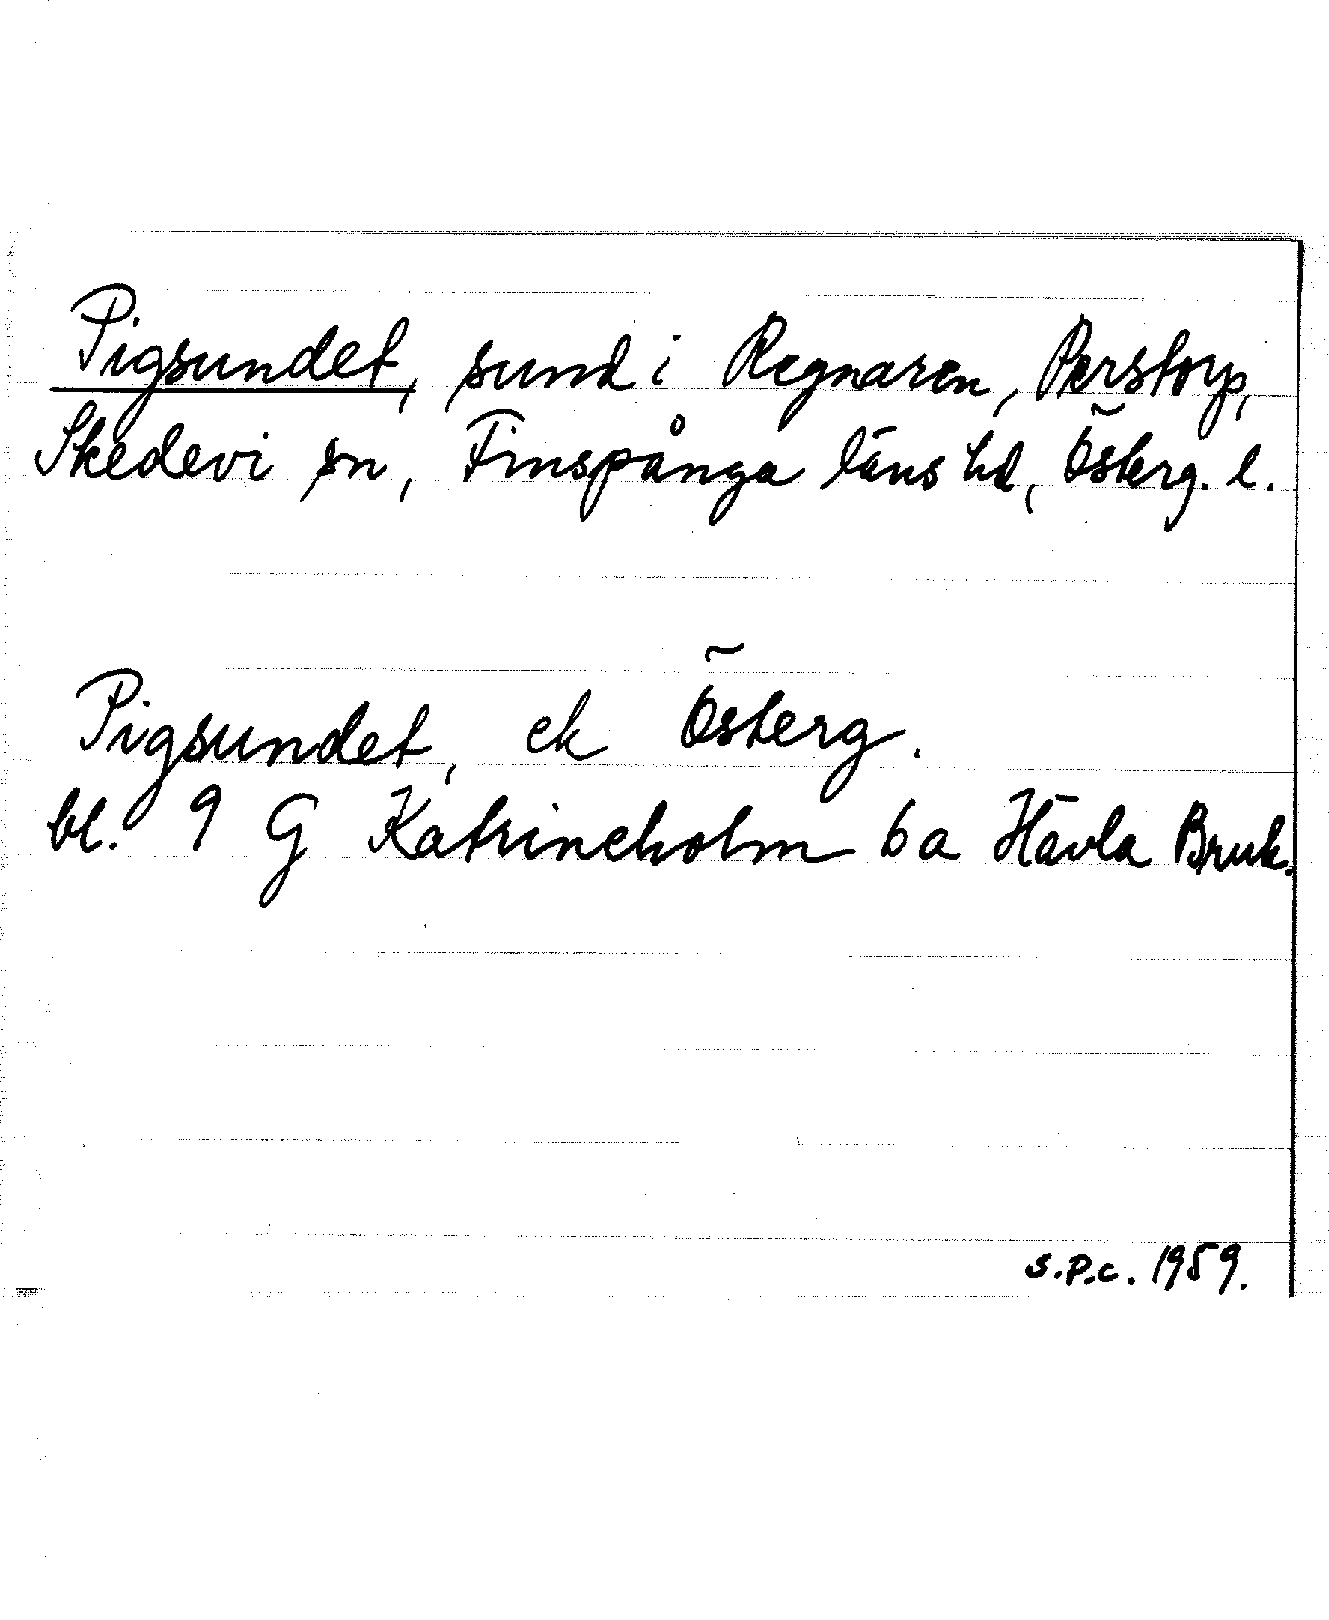 Pigsundet, sund i Regnaren, Perstorp,
Skedevi sn, Finspånga läns hd, Österg. l.
Pigsundet, ek Österg.
bl. 9 G Katrineholm 6 a Hävla Bruk.
s.p.c. 1959.